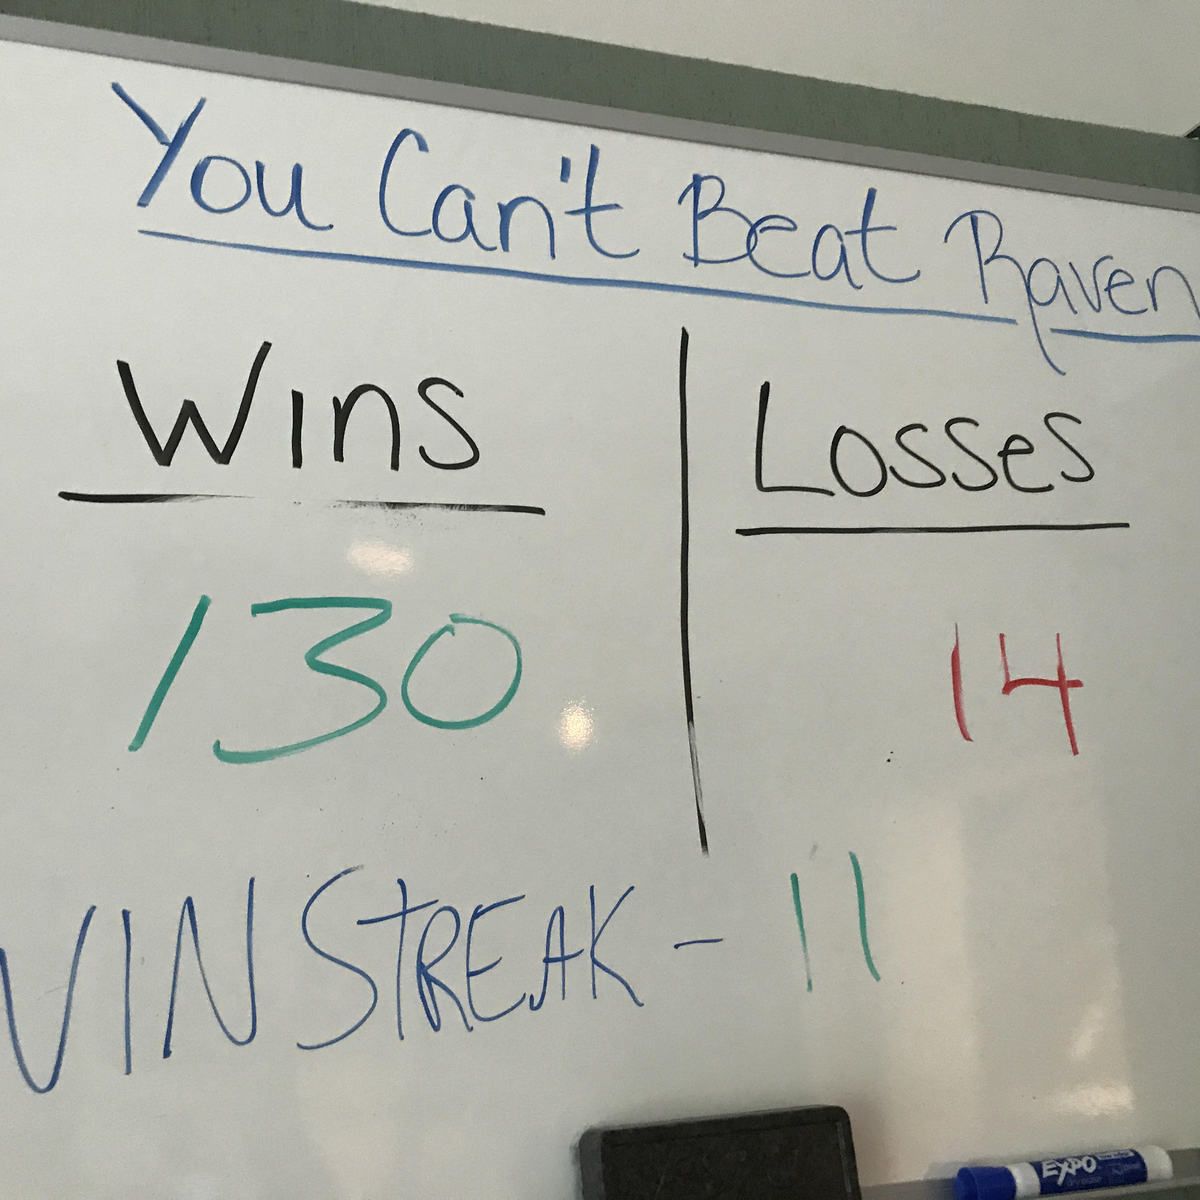 You Can't Beat Raven
Wins
Losses
130
14
WIN STREAK - 11
EXPO